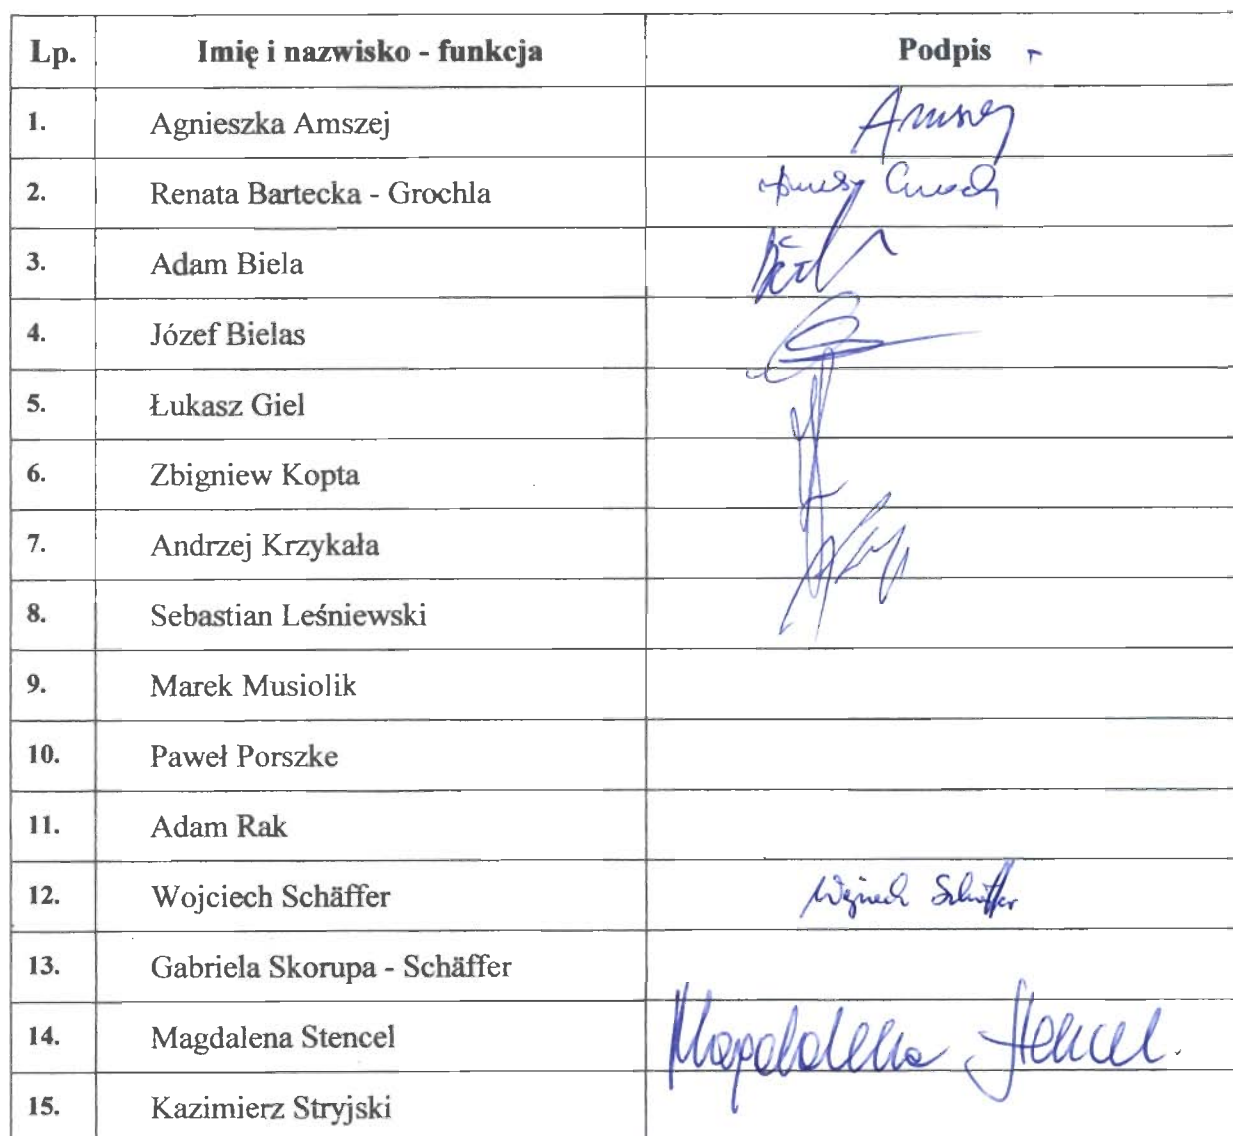 Lp. Imię i nazwisko - funkcja Podpis
1. Agnieszka Amszej Amszej
2. Renata Bartecka - Grochla
3. Adam Biela
4. Józef Bielas
5. Łukasz Giel
6. Zbigniew Kopta
7. Andrzej Krzykała
8. Sebastian Leśniewski
9. Marek Musiolik
10. Paweł Porszke
11. Adam Rak
12. Wojciech Schäffer Wojciech Schäffer
13. Gabriela Skorupa - Schäffer
14. Magdalena Stencel Magdalena Stencel.
15. Kazimierz Stryjski